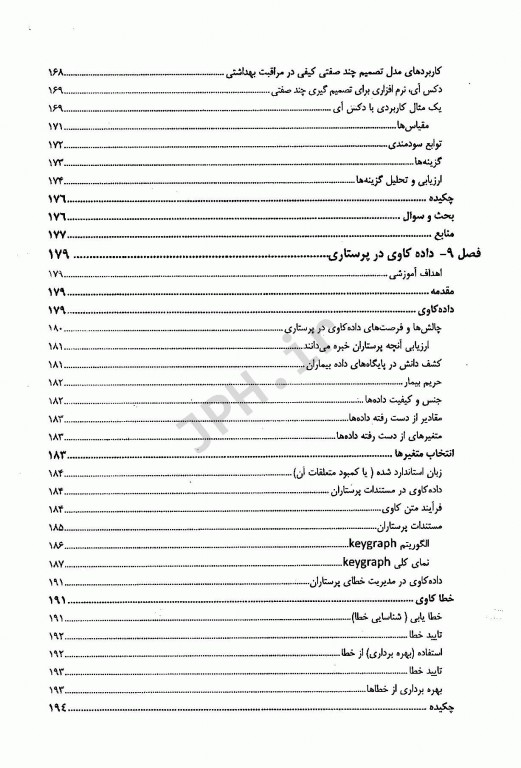 کاربردهای مدل تصمیم چند صفتی کیفی در مراقبت بهداشتی ........ ۱۶۸
دکس آی، نرم افزاری برای تصمیم گیری چند صفتی ........ ۱۶۹
یک مثال کاربردی با دکس آی ........ ۱۶۹
مقیاس‌ها ........ ۱۷۱
توابع سودمندی ........ ۱۷۲
گزینه‌ها ........ ۱۷۳
ارزیابی و تحلیل گزینه‌ها ........ ۱۷۴
چکیده ........ ۱۷۶
بحث و سوال ........ ۱۷۶
منابع ........ ۱۷۷
فصل ۹- داده کاوی در پرستاری ........ ۱۷۹
اهداف آموزشی ........ ۱۷۹
مقدمه ........ ۱۷۹
داده‌کاوی ........ ۱۷۹
چالش‌ها و فرصت‌های داده‌کاوی در پرستاری ........ ۱۸۰
ارزیابی آنچه پرستاران خبره می‌دانند ........ ۱۸۱
کشف دانش در پایگاه‌های داده بیماران ........ ۱۸۱
حریم بیمار ........ ۱۸۲
جنس و کیفیت داده‌ها ........ ۱۸۲
مقادیر از دست رفته داده‌ها ........ ۱۸۳
متغیرهای از دست رفته داده‌ها ........ ۱۸۳
انتخاب متغیرها ........ ۱۸۳
زبان استاندارد شده ( یا کمبود متعلقات آن) ........ ۱۸۴
داده‌کاوی در مستندات پرستاران ........ ۱۸۴
فرآیند متن کاوی ........ ۱۸۴
مستندات پرستاران ........ ۱۸۵
الگوریتم keygraph ........ ۱۸۶
نمای کلی keygraph ........ ۱۸۷
داده‌کاوی در مدیریت خطای پرستاران ........ ۱۹۱
خطا کاوی ........ ۱۹۱
خطا یابی ( شناسایی خطا) ........ ۱۹۱
تایید خطا ........ ۱۹۲
استفاده (بهره برداری) از خطا ........ ۱۹۲
تایید خطا ........ ۱۹۳
بهره برداری از خطاها ........ ۱۹۳
چکیده ........ ۱۹۴
JPH.ir